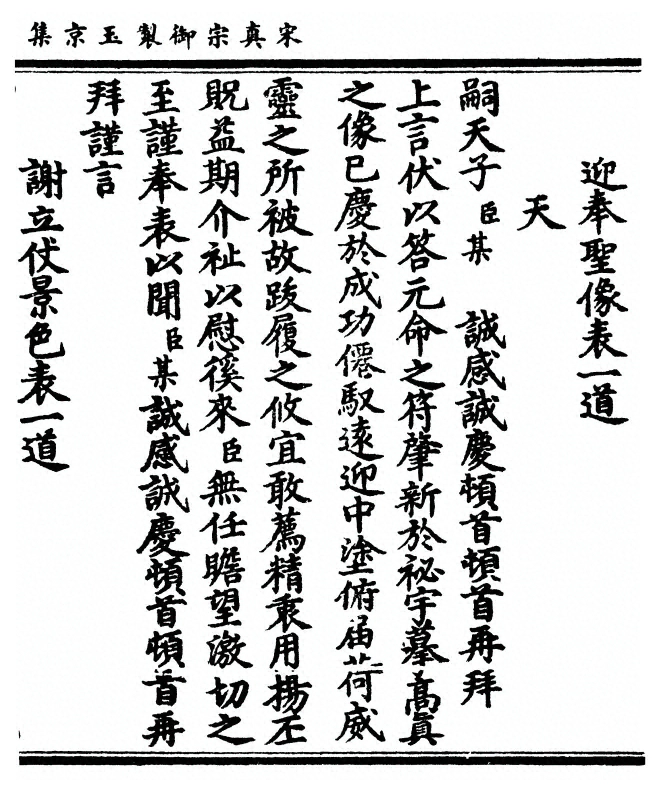 宋真宗御製玉京集
迎奉聖像表一道
天
嗣天子臣某　誠感誠慶頓首頓首再拜
上言伏以答元命之符肇新於祕宇摹高真
之像已慶於成功僊馭遠迎中塗俯届荷威
靈之所被故踐履之攸宜敢薦精衷用揚丕
貺益期介祉以慰徯來臣無任瞻望激切之
至謹奉表以聞臣某誠感誠慶頓首頓首再
拜謹言
謝立仗景色表一道